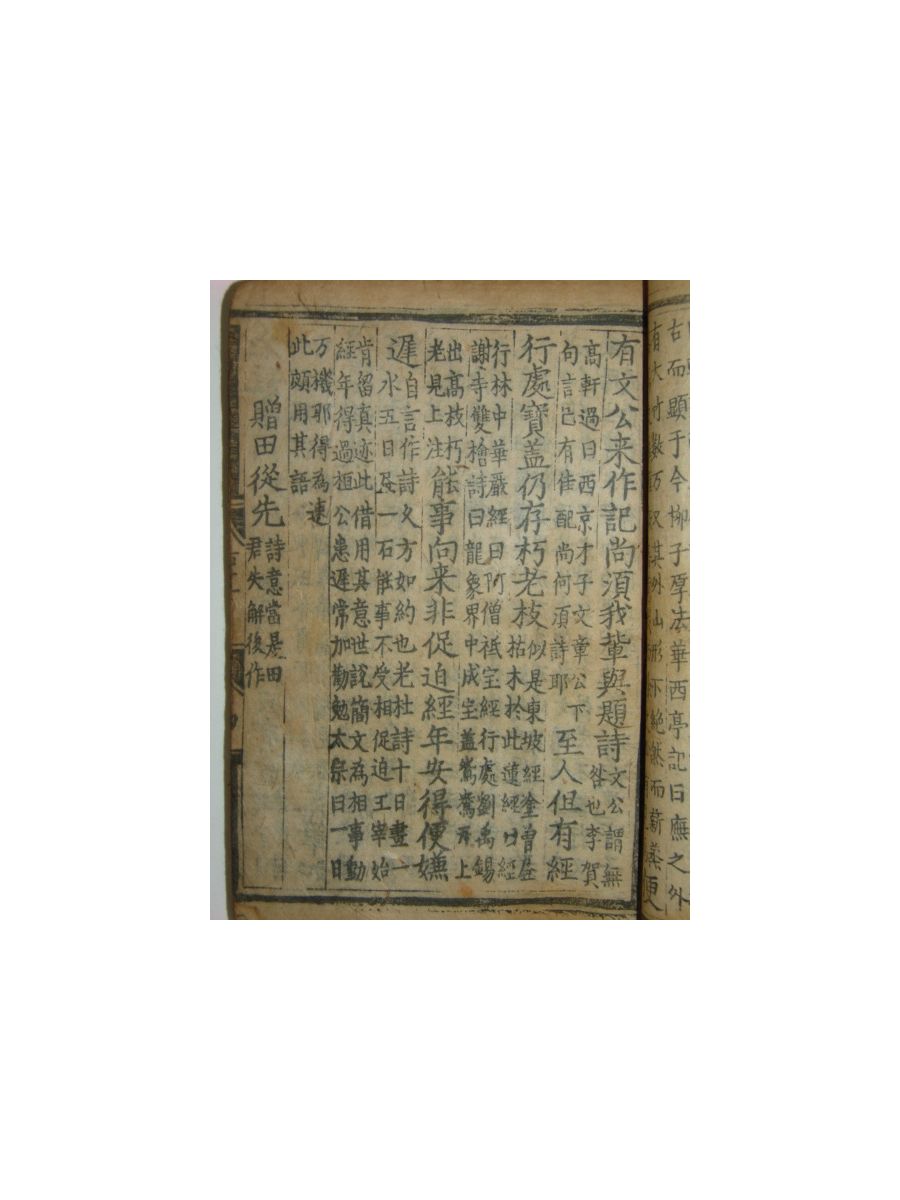 古而顯于今柳子厚法華西亭記曰廡之外
有大竹數万又其外山形下絶然而薪蒸更
有文公来作記尚須我輩與題詩
文公謂無
咎也李賀
高軒過曰西京才子文章公下
句言已有佳配尚何須詩耶
至人但有經
行處寶盖仍存朽老枝
似是東坡經塗曾坐
枯木於此蓮經曰經
行林中華嚴經曰阿僧祗宝經行處劉禹錫
謝寺雙檜詩曰龍象界中成宝盖鴛鴦瓦上
出高枝朽
老見上注
能事向来非促迫經年安得便嫌
遲
自言作詩久方如約也老杜詩十日畫一
水五日𦘕一石能事不受相促迫王宰始
肯留真迹此借用其意世說簡文為相事動
經年得過桓公患遲常加勸勉太祭曰一日
万機耶得為速
此頗用其語
贈田從先
詩意當是田
君失解後作